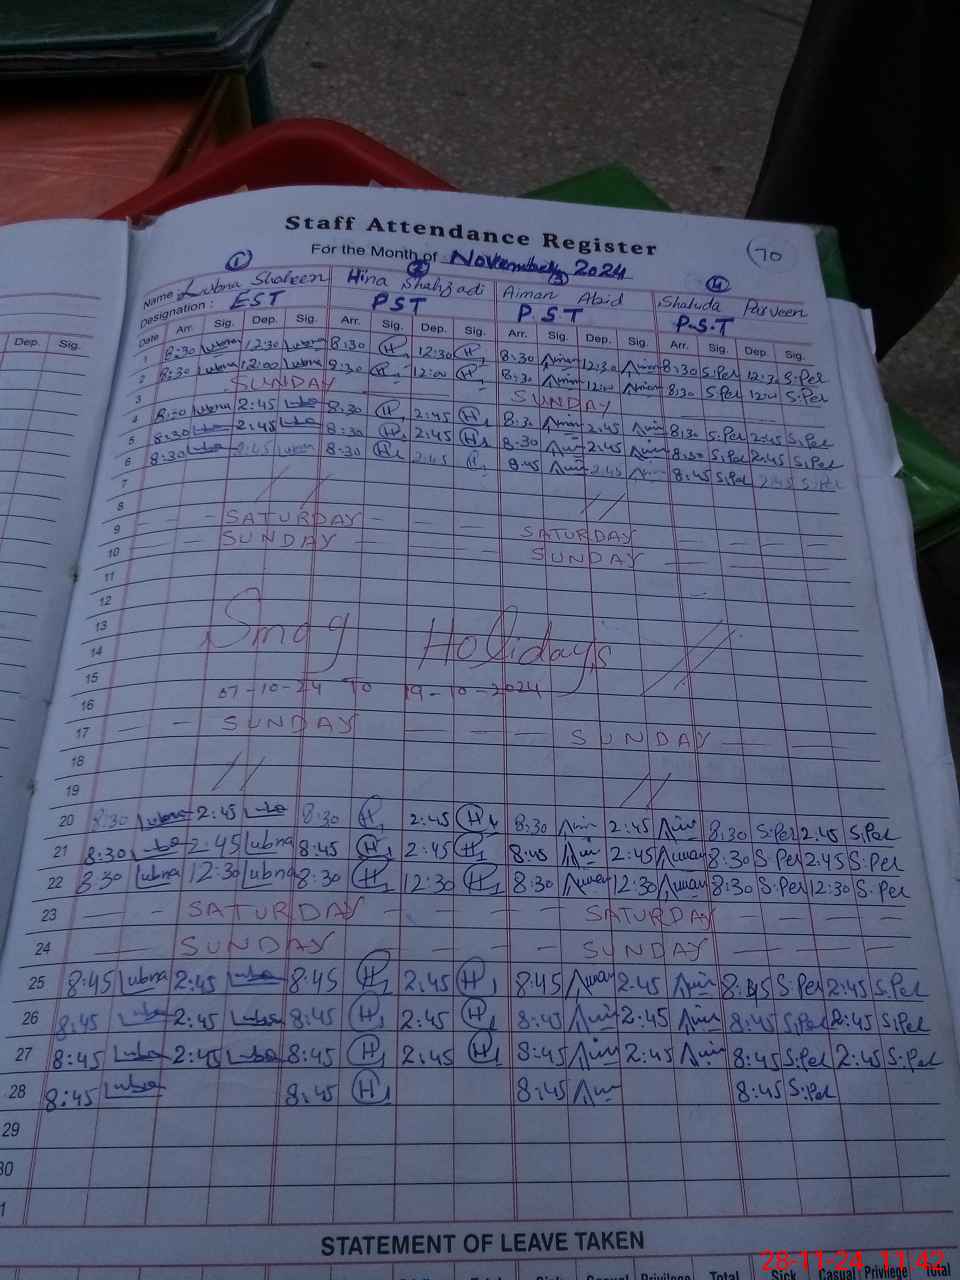 Staff Attendance Register
(70)
For the Month of November 2024
1 2 3 4
Name Lubna Shaheen Hina Shahzadi Aiman Abid Parveen
Designation : EST PST P.S.T P.S.T
Dep. Sig. Date Arr. Sig. Dep. Sig. Arr. Sig. Dep. Sig. Arr. Sig. Dep. Sig. Arr. Sig. Dep. Sig.
1 8:30 Lubna 12:30 Lubna 8:30 H 12:30 H 8:30 12:30 8:30 S.Per 12:30 S.Per
2 8:30 Lubna 12:00 Lubna 8:30 H 12:00 H 8:30 12:00 8:30 S.Per 12:00 S.Per
3 SUNDAY SUNDAY
4 8:30 Lubna 2:45 8:30 H 2:45 H 8:30 2:45 8:30 S.Per 2:45 S.Per
5 8:30 2:45 8:30 H 2:45 H 8:30 2:45 8:30 S.Per 2:45 S.Per
6 8:30 2:45 Lubna 8:30 H 2:45 H 8:45 2:45 8:45 S.Per 2:45 S.Per
7
8
9 SATURDAY SATURDAY
10 SUNDAY SUNDAY
11
12
13
14 Smog Holidays
15
16 07-10-24 To 19-10-2024
17 SUNDAY SUNDAY
18
19
20 8:30 Lubna 2:45 8:30 H 2:45 H 8:30 2:45 8:30 S.Per 2:45 S.Per
21 8:30 2:45 Lubna 8:45 H 2:45 H 8:45 2:45 8:30 S.Per 2:45 S.Per
22 8:30 Lubna 12:30 Lubna 8:30 H 12:30 H 8:30 12:30 8:30 S.Per 12:30 S.Per
23 SATURDAY SATURDAY
24 SUNDAY SUNDAY
25 8:45 Lubna 2:45 8:45 H 2:45 H 8:45 2:45 8:45 S.Per 2:45 S.Per
26 8:45 2:45 8:45 H 2:45 H 8:45 2:45 8:45 S.Per 2:45 S.Per
27 8:45 2:45 8:45 H 2:45 H 8:45 2:45 8:45 S.Per 2:45 S.Per
28 8:45 Lubna 8:45 H 8:45 8:45 S.Per
29
30
1
STATEMENT OF LEAVE TAKEN
28-11-24 11:42
Total Sick Casual Privilege Total